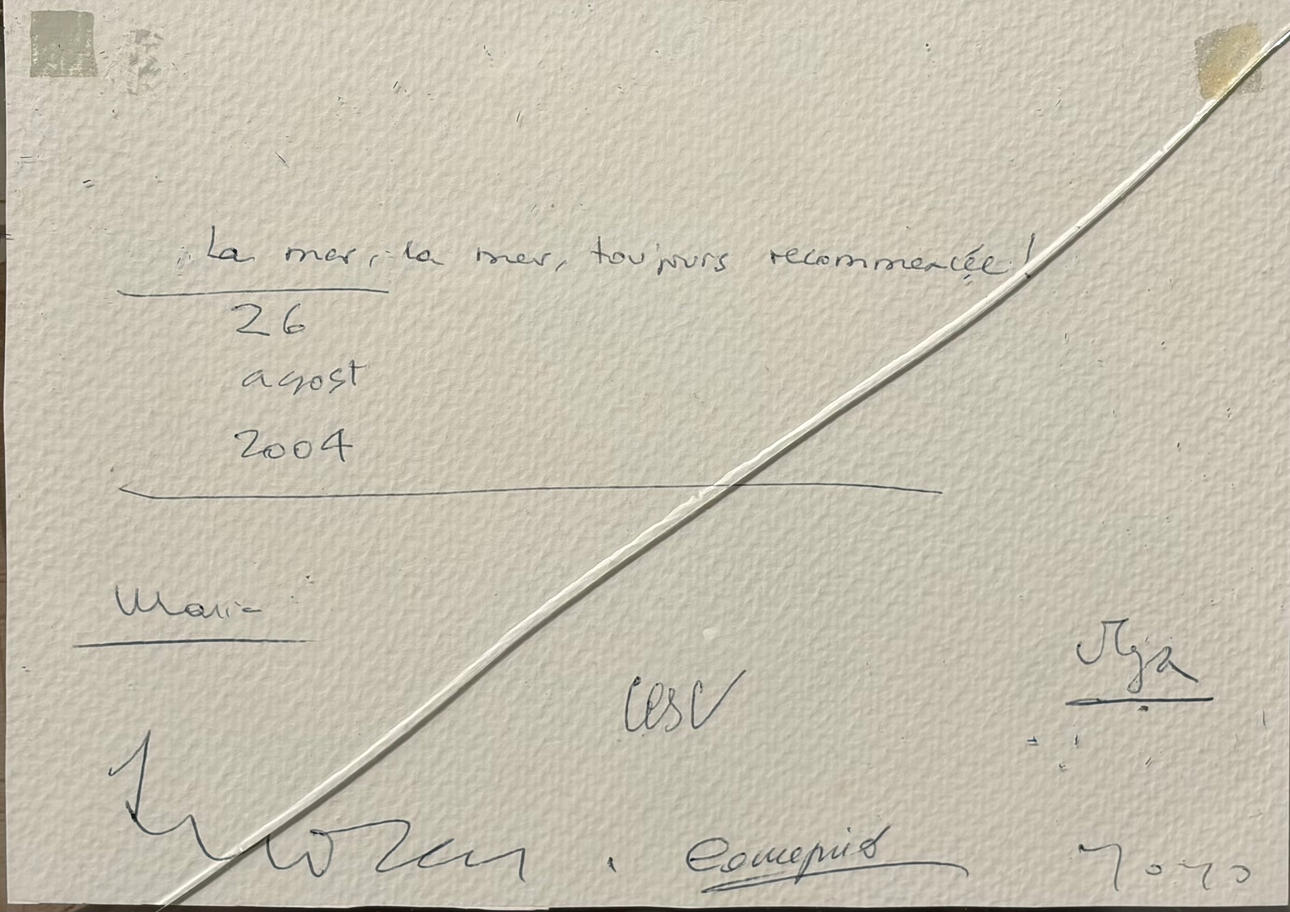 La mer, la mer, toujours recommencée!
26
agost
2004
Maria
Cesc
Yoyo